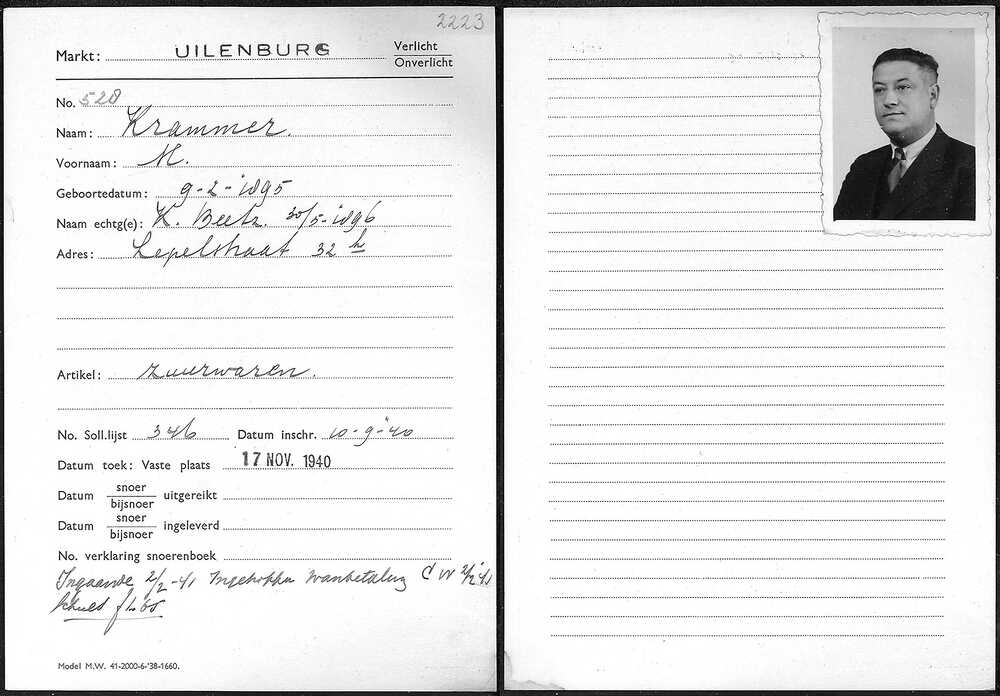 2223
Markt: UILENBURG Verlicht
Onverlicht
No. 528
Naam: Krammer.
Voornaam: M.
Geboortedatum: 9-2-1895
Naam echtg(e): K. Beetz. 30/5-1896
Adres: Lepelstraat 32 h
Artikel: zuurwaren.
No. Soll.lijst 346 Datum inschr. 10-9-40
Datum toek: Vaste plaats 17 NOV. 1940
Datum snoer
bijsnoer uitgereikt
Datum snoer
bijsnoer ingeleverd
No. verklaring snoerenboek
Ingaande 2/2-41 Ingetrokken wanbetaling 2/2 41
Schuld
Model M.W. 41-2000-6-'38-1660.